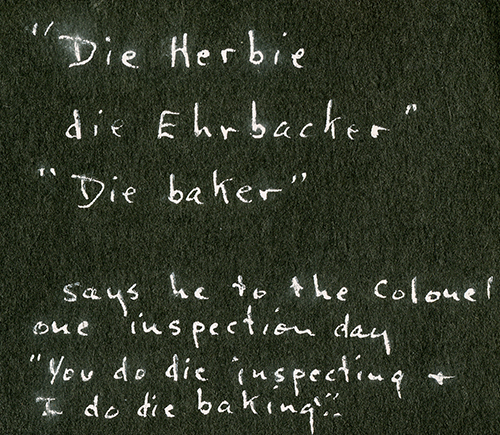 "Die Herbie
die Ehrbacker"
"Die baker"
says he to the Colonel
one inspection day
"You do die inspecting +
I do die baking".